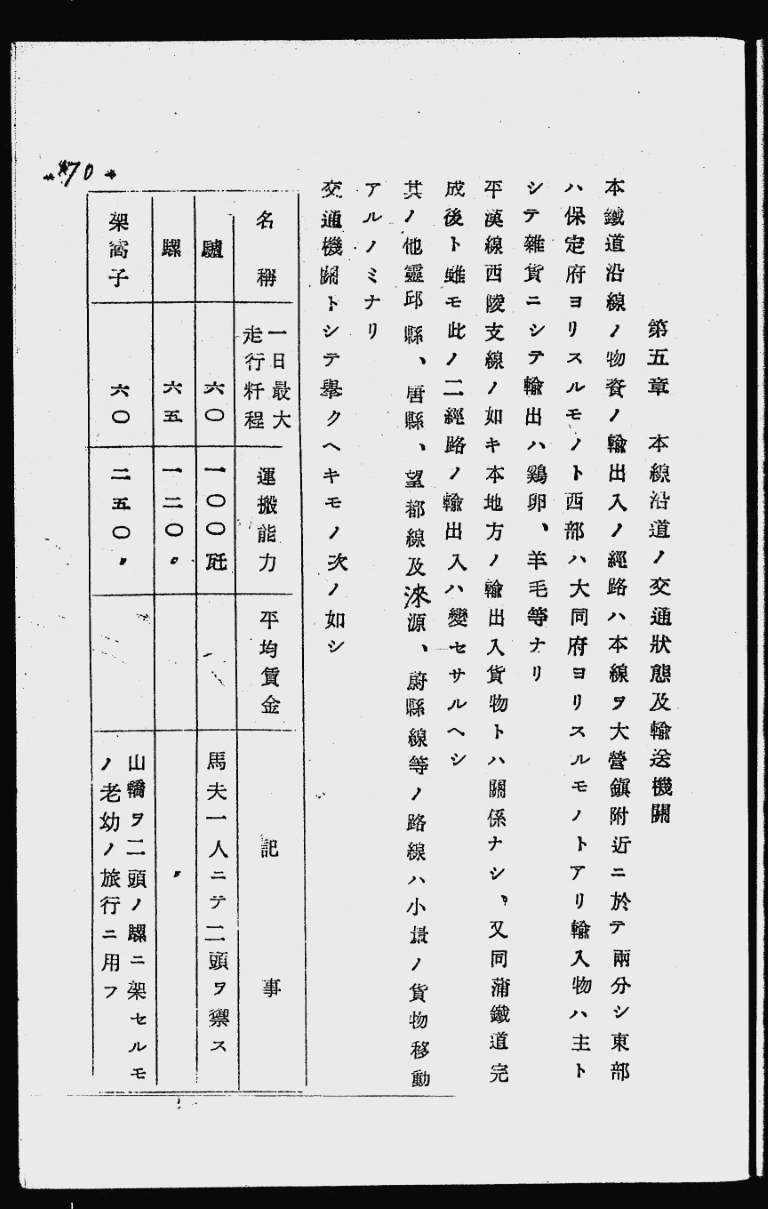 第五章　本線沿道ノ交通狀態及輸送機關
本鐵道沿線ノ物資ノ輸出入ノ經路ハ本線ヲ大營鎭附近ニ於テ兩分シ東部
ハ保定府ヨリスルモノト西部ハ大同府ヨリスルモノトアリ輸入物ハ主ト
シテ雜貨ニシテ輸出ハ鷄卵、羊毛等ナリ
平漢線西陵支線ノ如キ本地方ノ輸出入貨物トハ關係ナシ、又同蒲鐵道完
成後ト雖モ此ノ二經路ノ輸出入ハ變セサルヘシ
其ノ他靈邱縣、唐縣、望都線及淶源、蔚縣線等ノ路線ハ小量ノ貨物移動
アルノミナリ
交通機關トシテ擧クヘキモノ次ノ如シ
名稱　一日最大走行粁程　運搬能力　平均賃金　記事
驢　六〇　一〇〇瓩　馬夫一人ニテ二頭ヲ禦ス
騾　六五　一二〇〃　〃
架窩子　六〇　二五〇〃　山轎ヲ二頭ノ騾ニ架セルモ
ノ老幼ノ旅行ニ用フ
70